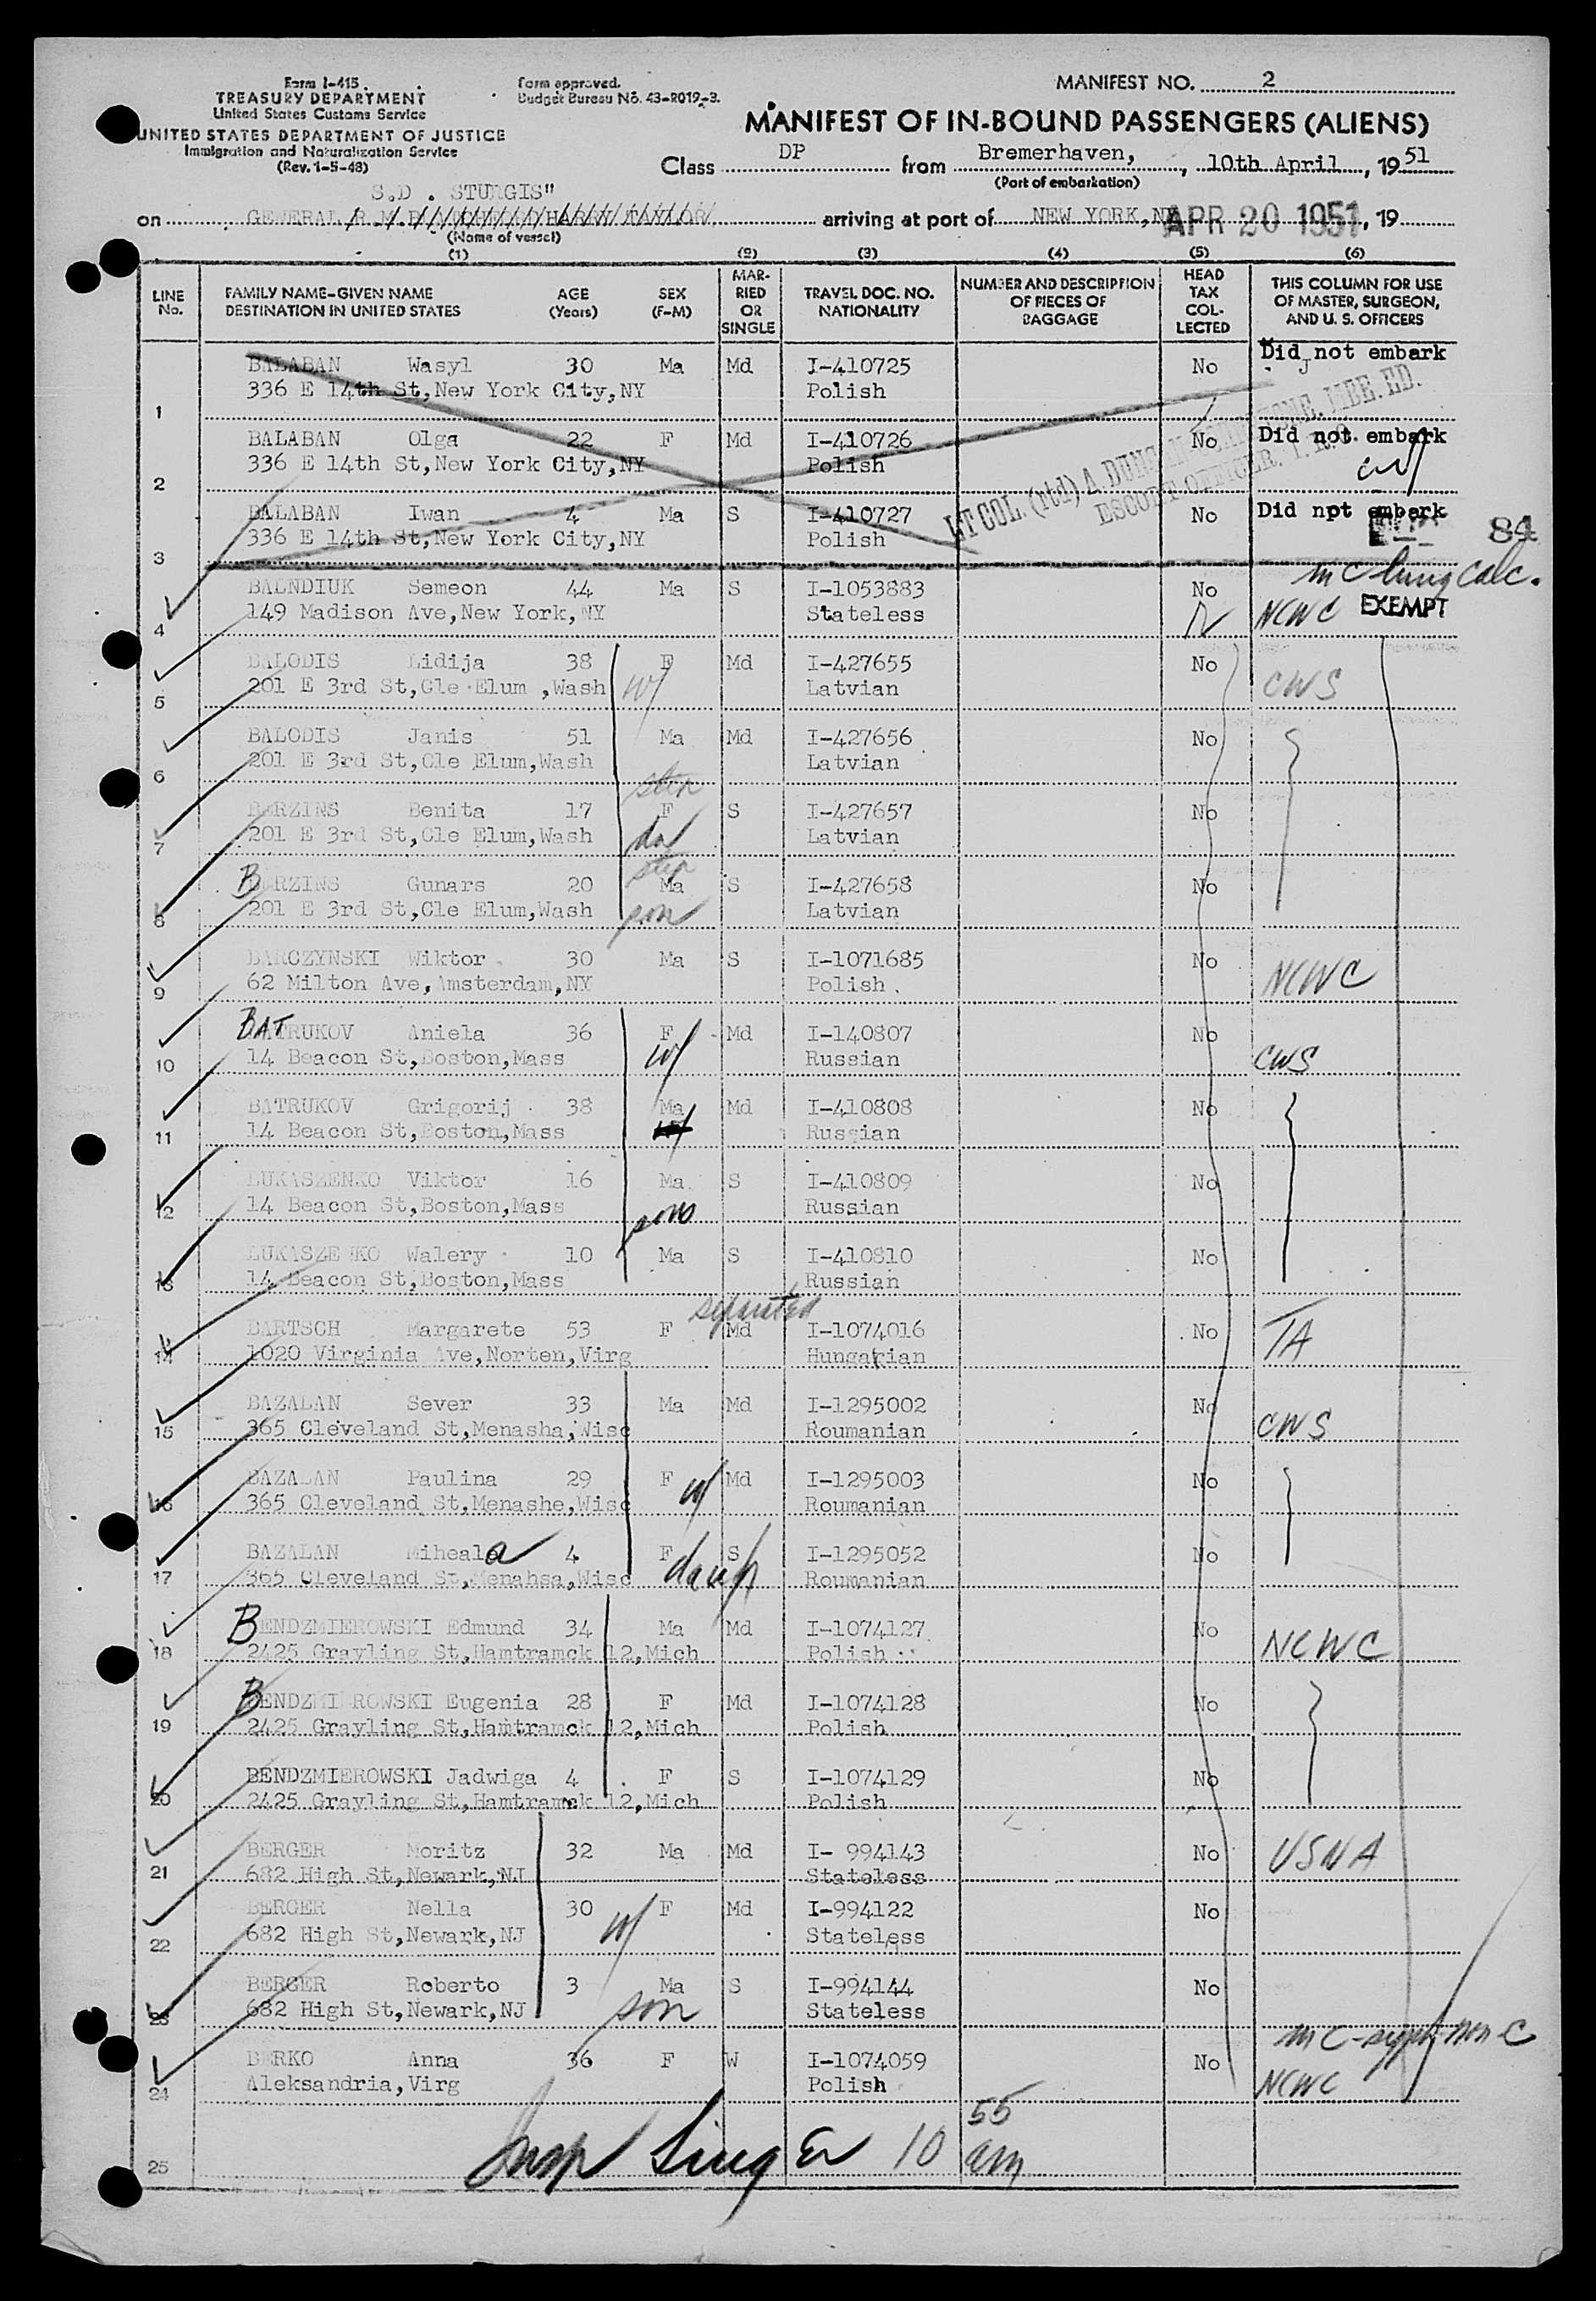 Form I-415
TREASURY DEPARTMENT
United States Customs Service
UNITED STATES DEPARTMENT OF JUSTICE
Immigration and Naturalization Service
(Rev. 1-5-48)
Form approved.
Budget Bureau No. 43-R019-3.
MANIFEST NO. 2
MANIFEST OF IN-BOUND PASSENGERS (ALIENS)
Class DP from Bremerhaven, , 10th April , 19 51
(Port of embarkation)
S.D . STURGIS"
on GENERAL HARRY TAYLOR arriving at port of NEW YORK,NY APR 20 1951 , 19
(Name of vessel)
(1) (2) (3) (4) (5) (6)
LINE No. FAMILY NAME-GIVEN NAME DESTINATION IN UNITED STATES AGE (Years) SEX (F-M) MARRIED OR SINGLE TRAVEL DOC. NO. NATIONALITY NUMBER AND DESCRIPTION OF PIECES OF BAGGAGE HEAD TAX COLLECTED THIS COLUMN FOR USE OF MASTER, SURGEON, AND U. S. OFFICERS
BALABAN Wasyl 30 Ma Md I-410725 No Did not embark
1 336 E 14th St,New York City,NY Polish
BALABAN Olga 22 F Md I-410726 No Did not embark
2 336 E 14th St,New York City,NY Polish
LT COL. (rtd) A. DUNCAN
ESCORT OFFICER, I.R.O.
BALABAN Iwan 4 Ma S I-410727 No Did npt embark
3 336 E 14th St,New York City,NY Polish
84
m C lung calc.
BALNDIUK Semeon 44 Ma S I-1053883 No
4 149 Madison Ave,New York,NY Stateless NCWC EXEMPT
BALODIS Lidija 38 F Md I-427655 No
5 201 E 3rd St,Cle Elum ,Wash w/ Latvian CWS
BALODIS Janis 51 Ma Md I-427656 No
6 201 E 3rd St,Cle Elum,Wash Latvian
step
BERZINS Benita 17 F S I-427657 No
7 201 E 3rd St,Cle Elum,Wash da Latvian
step
BERZINS Gunars 20 Ma S I-427658 No
8 201 E 3rd St,Cle Elum,Wash son Latvian
BARCZYNSKI Wiktor 30 Ma S I-1071685 No
9 62 Milton Ave,Amsterdam,NY Polish NCWC
BATRUKOV Aniela 36 F Md I-140807 No
10 14 Beacon St,Boston,Mass w/ Russian CWS
BATRUKOV Grigorij 38 Ma Md I-410808 No
11 14 Beacon St,Boston,Mass Russian
LUKASZENKO Viktor 16 Ma S I-410809 No
12 14 Beacon St,Boston,Mass sons Russian
LUKASZENKO Walery 10 Ma S I-410810 No
13 14 Beacon St,Boston,Mass Russian
separated
BARTSCH Margarete 53 F Md I-1074016 No TA
14 1020 Virginia Ave,Norten,Virg Hungarian
BAZALAN Sever 33 Ma Md I-1295002 No
15 365 Cleveland St,Menasha,Wisc Roumanian CWS
BAZALAN Paulina 29 F w/ Md I-1295003 No
16 365 Cleveland St,Menashe,Wisc Roumanian
BAZALAN Miheala 4 F S I-1295052 No
17 365 Cleveland St,Menahsa,Wisc daugh Roumanian
BENDZMIEROWSKI Edmund 34 Ma Md I-1074127 No
18 2425 Grayling St,Hamtramck 12,Mich Polish NCWC
BENDZMIEROWSKI Eugenia 28 F Md I-1074128 No
19 2425 Grayling St,Hamtramck 12,Mich Polish
BENDZMIEROWSKI Jadwiga 4 F S I-1074129 No
20 2425 Grayling St,Hamtramck 12,Mich Polish
BERGER Moritz 32 Ma Md I- 994143 No USNA
21 682 High St,Newark,NJ Stateless
BERGER Nella 30 w/ F Md I-994122 No
22 682 High St,Newark,NJ Stateless
BERGER Roberto 3 Ma S I-994144 No
23 682 High St,Newark,NJ son Stateless
BERKO Anna 36 F W I-1074059 No
24 Aleksandria,Virg Polish NCWC
25 Insp Singer 10 55 am